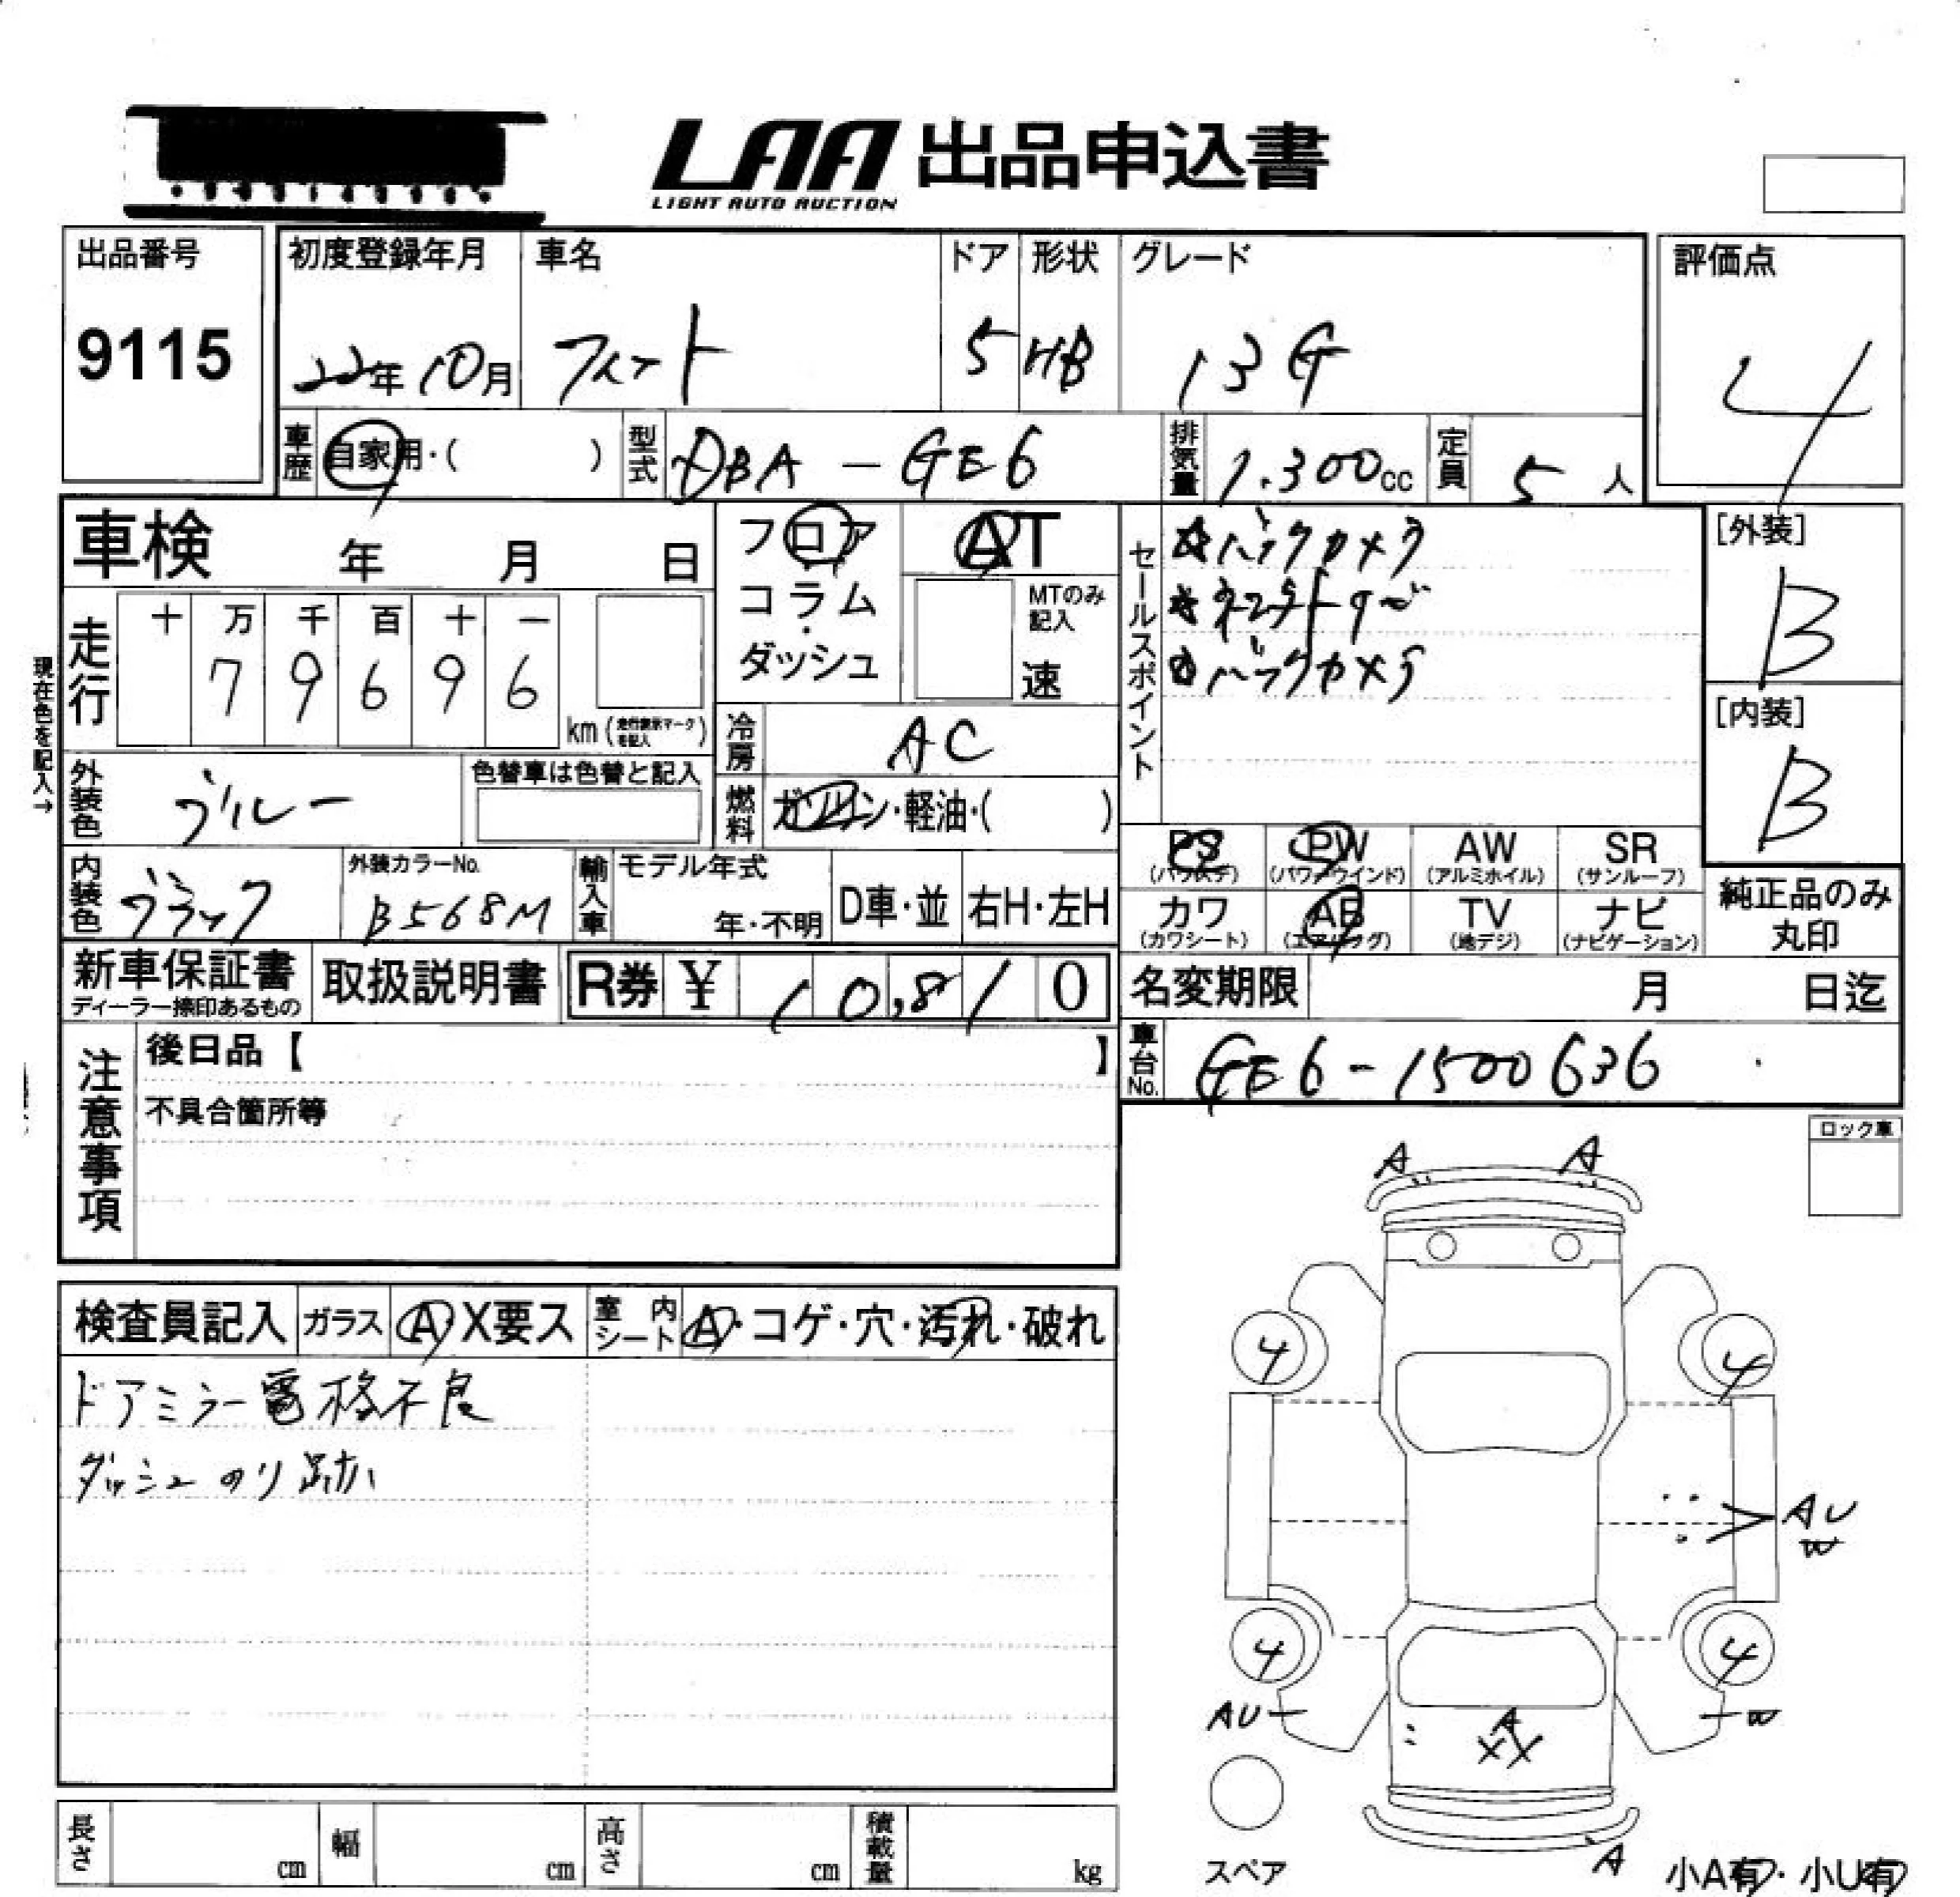 LAA 出品申込書
LIGHT AUTO AUCTION
出品番号
9115
初度登録年月 車名 ドア 形状 グレード
22年10月 フィット 5 HB 13G
評価点
4
車歴 自家用・( ) 型式 DBA-GE6 排気量 1.300cc 定員 5人
車検 年 月 日
フロア・コラム・ダッシュ
AT
MTのみ記入
速
セールスポイント
☆バックカメラ
バックカメラ
[外装]
B
[内装]
B
現在色を記入→
走行 十 万 千 百 十 一
7 9 6 9 6
km(走行表示マークを記入)
冷房 AC
外装色 ブルー 色替車は色替と記入
燃料 ガソリン・軽油・( )
内装色 ブラック 外装カラーNo. B568M
輸入車 モデル年式 年・不明 D車・並 右H・左H
PS PW AW SR
(パワステ) (パワーウインド) (アルミホイル) (サンルーフ)
カワ AB TV ナビ
(カワシート) (エアバッグ) (地デジ) (ナビゲーション)
純正品のみ丸印
新車保証書
ディーラー捺印あるもの
取扱説明書
R券 ¥ 10,810
名変期限 月 日迄
車台No. GE6-1500636
注意事項
後日品【 】
不具合箇所等
ロック車
検査員記入 ガラス A・X要ス 室内シート A・コゲ・穴・汚れ・破れ
ドアミラー電格不良
ダッシュのり跡
A A
4 4
AU
W
4 4
AU W
A
XX
A
スペア
小A有・小U有
長さ cm 幅 cm 高さ cm 積載量 kg